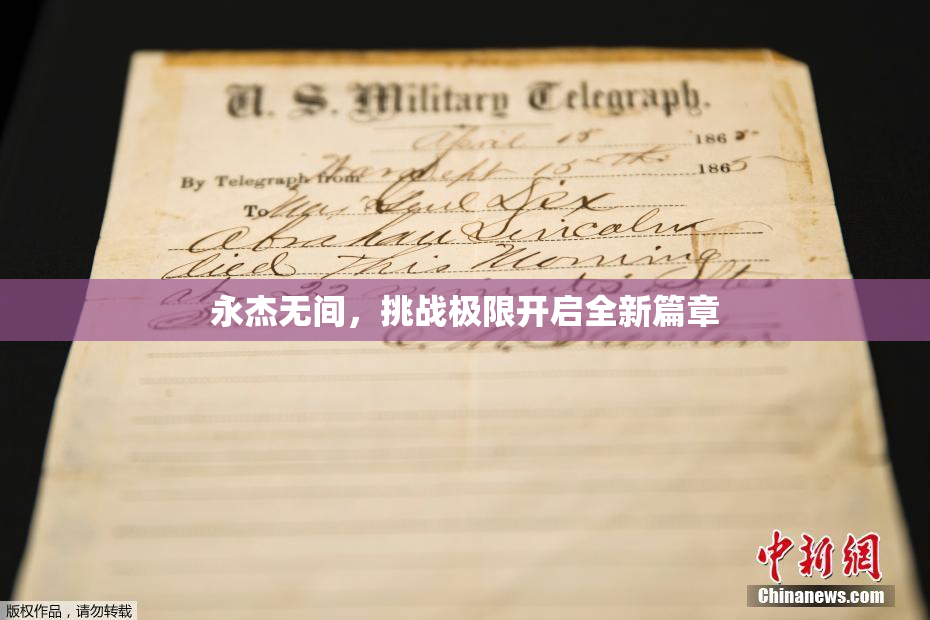 U. S. Military Telegraph.
April 15 1865
By Telegraph from War Dept 15th 1865
To Maj Genl Dix
Abraham Lincoln
died This Morning
at 22 minutes after
永杰无间，挑战极限开启全新篇章
Stanton
中新网
Chinanews.com
版权作品，请勿转载